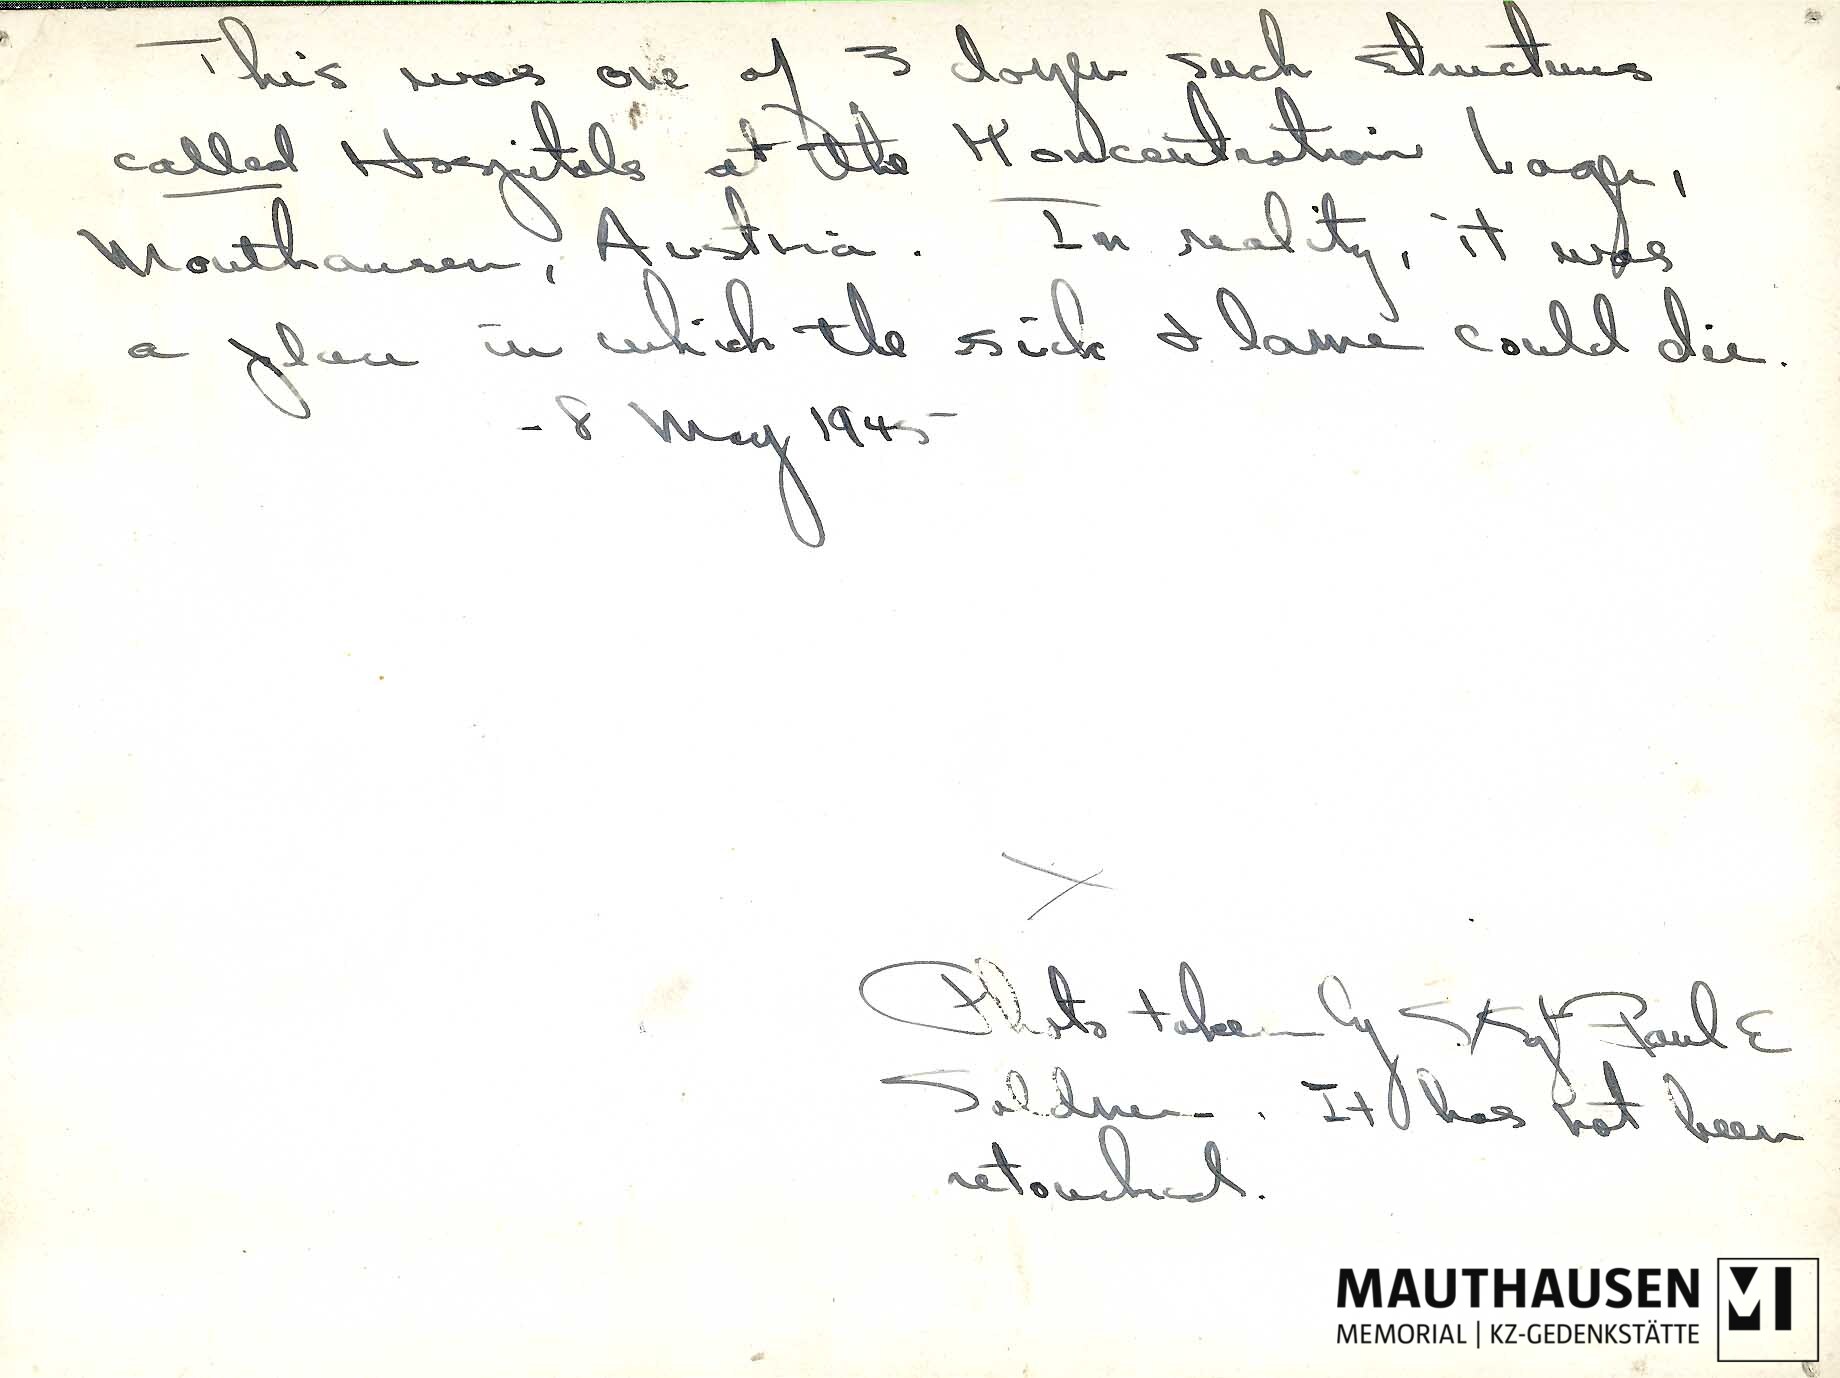 This was one of 3 dozen such structures
called Hospitals at the Koncentration Lager,
Mouthausen, Austria. In reality, it was
a place in which the sick & lame could die.
- 8 May 1945
Photo taken by S/Sgt Paul E
Soldner. It has not been
retouched.
MAUTHAUSEN
MEMORIAL | KZ-GEDENKSTÄTTE